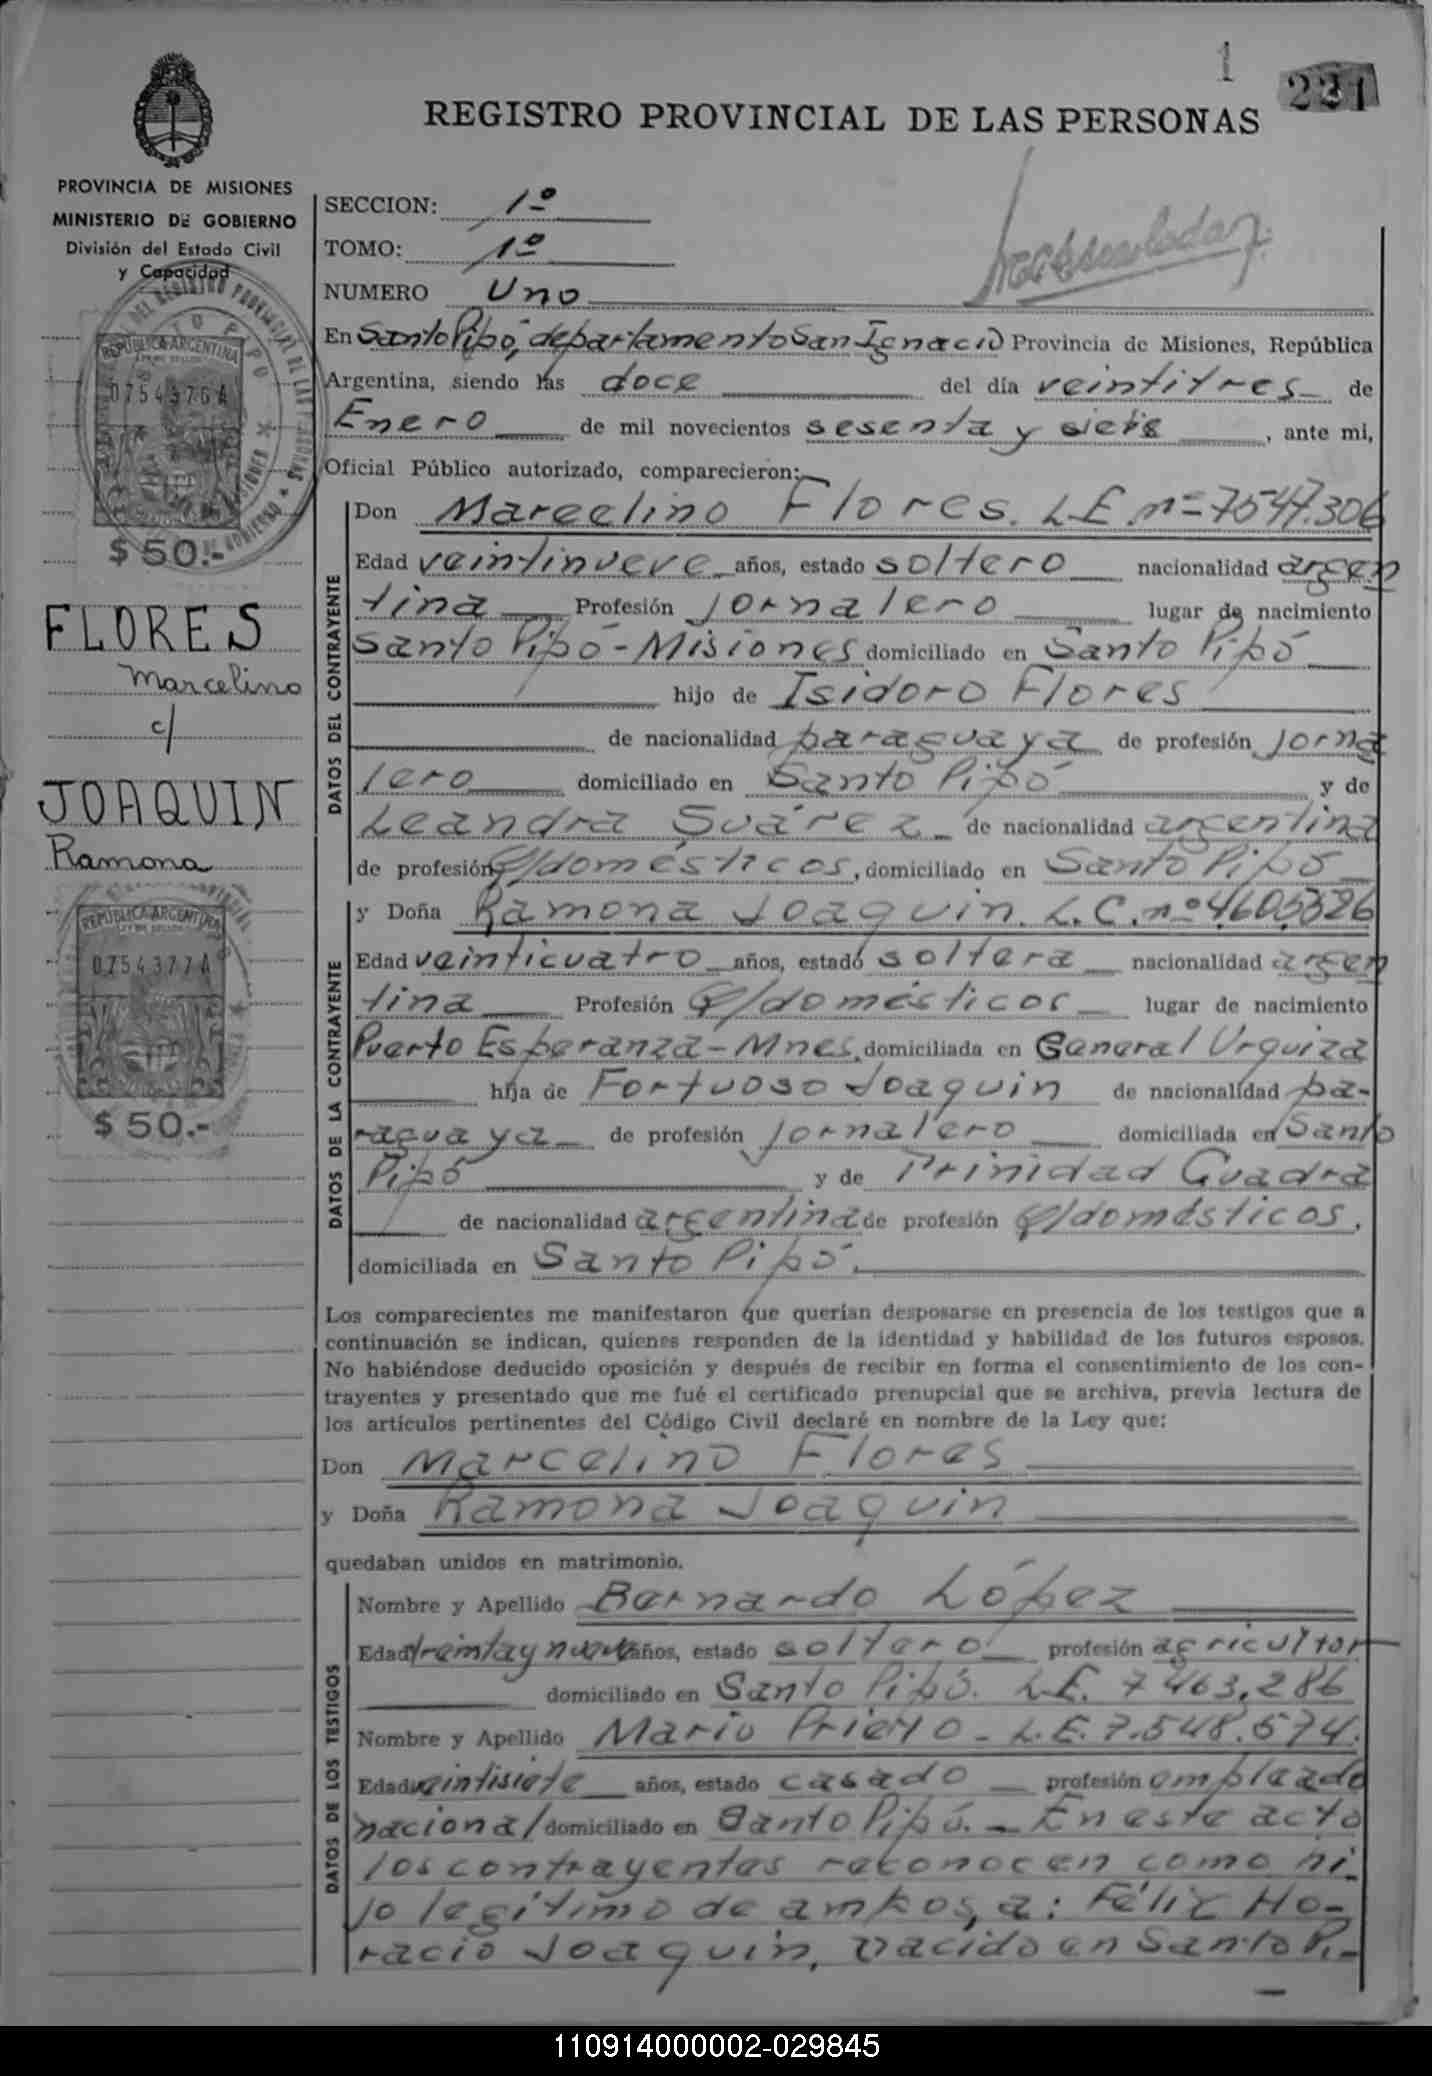 1
221
REGISTRO PROVINCIAL DE LAS PERSONAS
PROVINCIA DE MISIONES
MINISTERIO DE GOBIERNO
División del Estado Civil
y Capacidad
REPUBLICA ARGENTINA
0754376A
$ 50.-
FLORES
Marcelino
c/
JOAQUIN
Ramona
REPUBLICA ARGENTINA
0754377A
$ 50.-
SECCION: 1º
TOMO: 1º
NUMERO Uno
En Santo Pipó, departamento San Ignacio Provincia de Misiones, República
Argentina, siendo las doce del día veintitres de
Enero de mil novecientos sesenta y siete, ante mi,
Oficial Público autorizado, comparecieron:
DATOS DEL CONTRAYENTE
Don Marcelino Flores. L.E. nº 7547.306
Edad veintinueve años, estado soltero nacionalidad argen
tina Profesión Jornalero lugar de nacimiento
Santo Pipó - Misiones domiciliado en Santo Pipó
hijo de Isidoro Flores
de nacionalidad paraguaya de profesión Jorna
lero domiciliado en Santo Pipó y de
Leandra Suárez de nacionalidad argentina
de profesión Q/domésticos, domiciliado en Santo Pipó
DATOS DE LA CONTRAYENTE
y Doña Ramona Joaquin. L.C. nº 4.605.326
Edad veinticuatro años, estado soltera nacionalidad argen
tina Profesión Q/domésticos lugar de nacimiento
Puerto Esperanza - Mnes, domiciliada en General Urquiza
hija de Fortuoso Joaquin de nacionalidad pa-
raguaya de profesión Jornalero domiciliada en Santo
Pipó y de Trinidad Guadra
de nacionalidad argentina de profesión Q/domésticos,
domiciliada en Santo Pipó.
Los comparecientes me manifestaron que querían desposarse en presencia de los testigos que a
continuación se indican, quienes responden de la identidad y habilidad de los futuros esposos.
No habiéndose deducido oposición y después de recibir en forma el consentimiento de los con-
trayentes y presentado que me fué el certificado prenupcial que se archiva, previa lectura de
los artículos pertinentes del Código Civil declaré en nombre de la Ley que:
Don Marcelino Flores
y Doña Ramona Joaquin
quedaban unidos en matrimonio.
DATOS DE LOS TESTIGOS
Nombre y Apellido Bernardo López
Edad treinta y nueve años, estado soltero profesión agricultor
domiciliado en Santo Pipó. L.E. 7463.286
Nombre y Apellido Mario Prieto - L.E. 7.548.574.
Edad veintisiete años, estado casado profesión empleado
nacional domiciliado en Santo Pipó. - En este acto
los contrayentes reconocen como hi-
jo legítimo de ambos, a: Félix Ho-
racio Joaquin, nacido en Santo Pi-
110914000002-029845